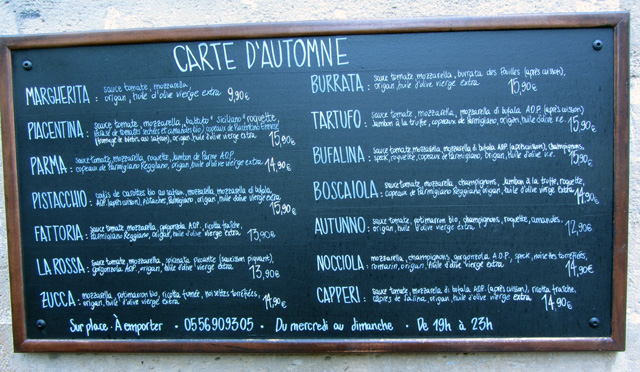 CARTE D'AUTOMNE
MARGHERITA : sauce tomate, mozzarella,
origan, huile d'olive vierge extra 9,90€
PIACENTINA : sauce tomate, mozzarella, battuto "Siciliano" roquette,
tomates séchées et bio) copeaux de
(fromage de brebis au safran), origan, huile d'olive vierge extra 15,90€
PARMA : sauce tomate, mozzarella, roquette, jambon de Parme A.O.P.
copeaux de Parmigiano Reggiano, origan, huile d'olive vierge extra 14,90€
PISTACCHIO : de carottes bio au safran, mozzarella, mozzarella di bufala,
AOP (après cuisson), pistaches, parmigiano, origan, huile d'olive vierge extra 15,90€
FATTORIA : sauce tomate, mozzarella, gorgonzola A.O.P., ricotta fraîche,
Parmigiano Reggiano, origan, huile d'olive vierge extra 13,90€
LA ROSSA : sauce tomate, mozzarella, spianata picante (saucisson piquant),
gorgonzola AOP, origan, huile d'olive vierge extra 13,90€
ZUCCA : mozzarella, potimarron bio, ricotta fumée, noisettes torréfiées,
origan, huile d'olive vierge extra 14,90€
BURRATA : sauce tomate, mozzarella, burrata des Pouilles (après cuisson),
origan, huile d'olive vierge extra 15,90€
TARTUFO : sauce tomate, mozzarella, mozzarella di bufala A.O.P. (après cuisson)
jambon à la truffe, copeaux de parmigiano, origan, huile d'olive v.e. 15,90€
BUFALINA : sauce tomate, mozzarella, mozzarella di bufala AOP (après cuisson), champignons,
speck, roquette, copeaux de parmigiano, origan, huile d'olive v.e. 15,90€
BOSCAIOLA : sauce tomate, mozzarella, champignons, jambon à la truffe, roquette,
copeaux de Parmigiano Reggiano, origan, huile d'olive vierge extra 14,90€
AUTUNNO : sauce tomate, potimarron bio, champignons, roquette, amandes,
origan, huile d'olive vierge extra 12,90€
NOCCIOLA : mozzarella, champignons, gorgonzola A.O.P., speck, noisettes torréfiées,
romarin, origan, huile d'olive vierge extra 14,90€
CAPPERI : sauce tomate, mozzarella di bufala AOP (après cuisson), ricotta fraîche,
câpres de Salina, origan, huile d'olive vierge extra 14,90€
Sur place · À emporter · 0556909305 · Du mercredi au dimanche · De 19h à 23h